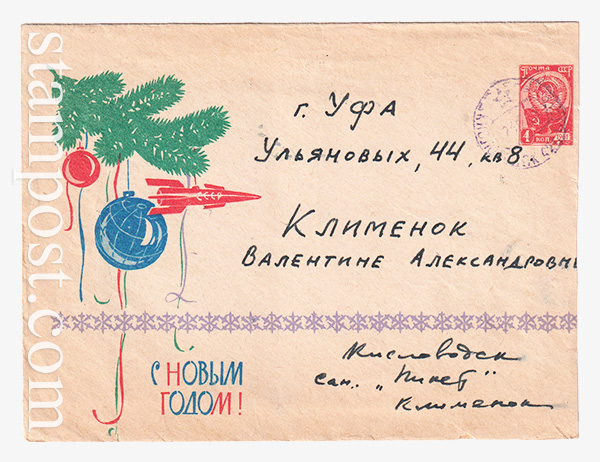 stampost.com
Почта СССР
4 коп.
г. Уфа
Ульяновых, 44, кв 8
Клименок
Валентине Александровне
СССР
С НОВЫМ
ГОДОМ!
Кисловодск
сан. „Пикет"
Клименок